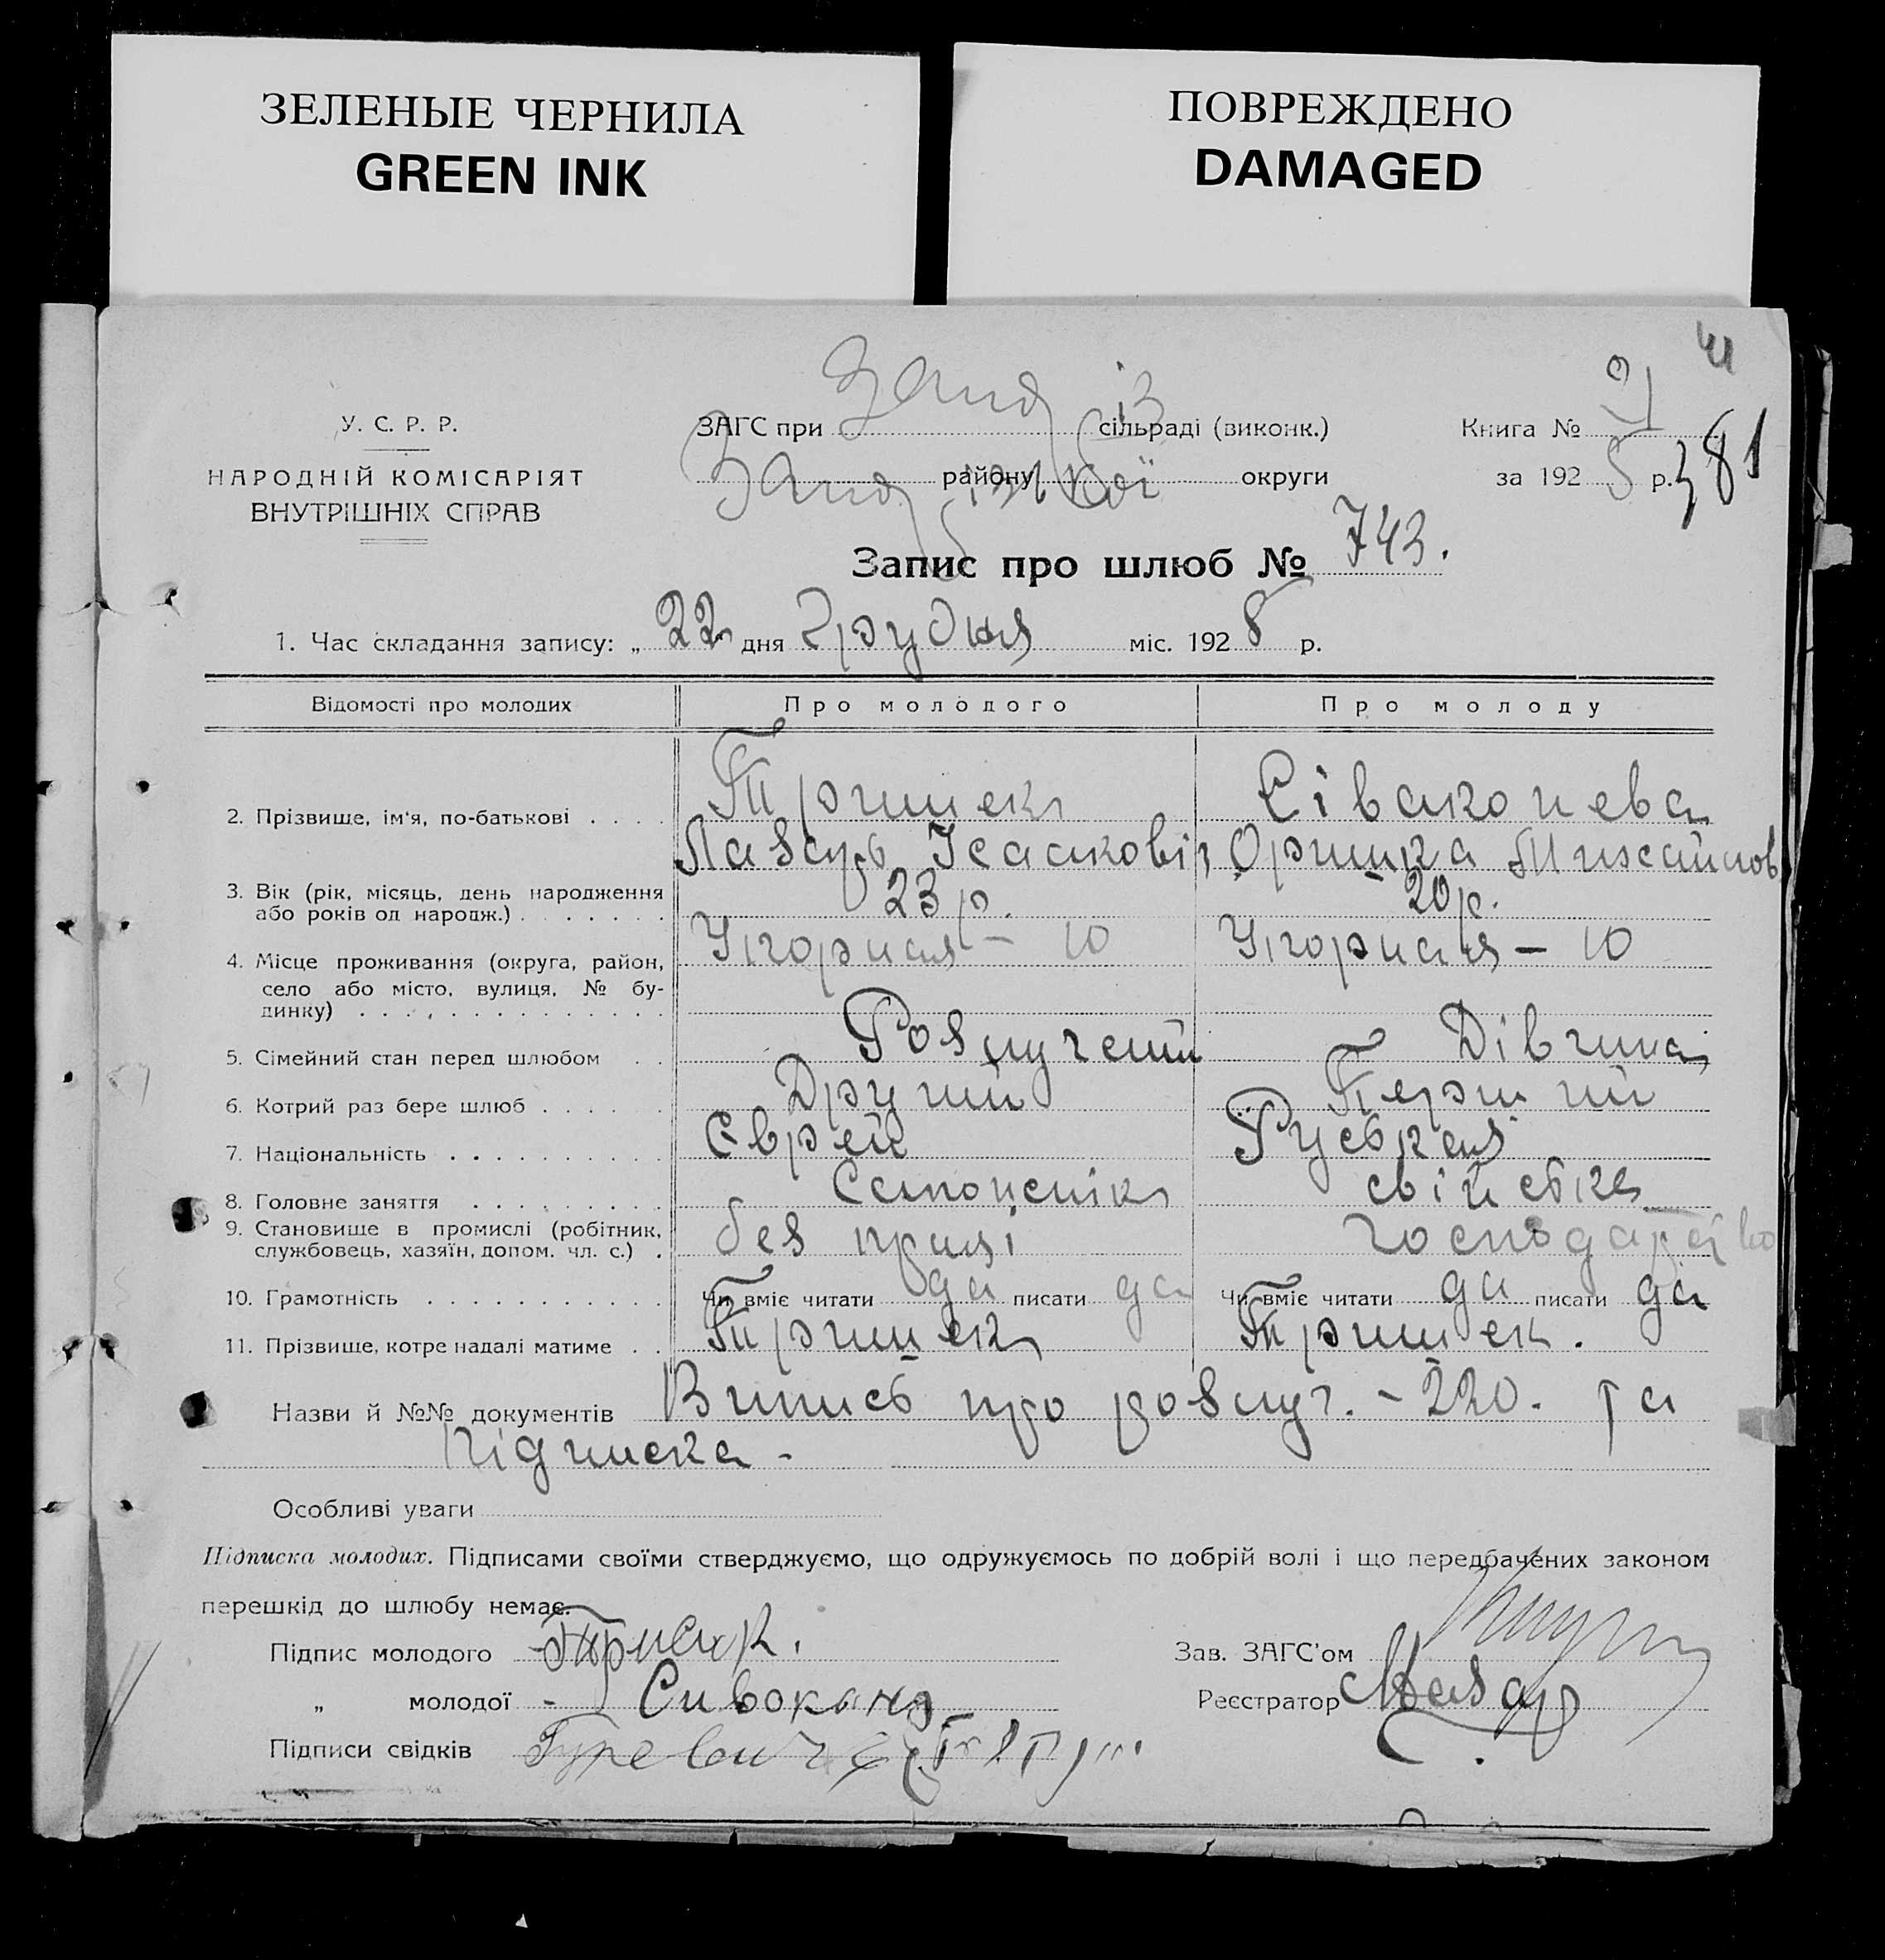 ЗЕЛЕНЫЕ ЧЕРНИЛА
GREEN INK
ПОВРЕЖДЕНО
DAMAGED
У. С. Р. Р.
НАРОДНІЙ КОМІСАРІЯТ
ВНУТРІШНІХ СПРАВ
ЗАГС при сільраді (виконк.)
району округи
Книга №
за 1925 р. 381
Запис про шлюб № 743.
1. Час складання запису: „ 22 дня Грудня міс. 1928 р.
Відомості про молодих Про молодого Про молоду
2. Прізвище, ім'я, по-батькові
Тришек Сіваконева
Лазарь Ісаакові Оришка Михайлов
3. Вік (рік, місяць, день народження
або років од народж.)
23 р. 20 р.
4. Місце проживання (округа, район,
село або місто, вулиця, № бу-
динку)
Угорная – 10 Угорная – 10
5. Сімейний стан перед шлюбом Розлучений Дівчина
6. Котрий раз бере шлюб Другий Перший
7. Національність Єврей Руська
8. Головне заняття свійське
9. Становище в промислі (робітник,
службовець, хазяїн, допом. чл. с.)
без праці господарство
10. Грамотність Чи вміє читати да писати да Чи вміє читати да писати да
11. Прізвище, котре надалі матиме Тришек Тришек.
Назви й №№ документів Випись про розлуч. – 220. та
підписка –
Особливі уваги
Підписка молодих. Підписами своїми стверджуємо, що одружуємось по добрій волі і що передбачених законом
перешкід до шлюбу немає.
Підпис молодого
Зав. ЗАГС'ом
„ молодої – Сивоконь
Реєстратор
Підписи свідків Гуревич